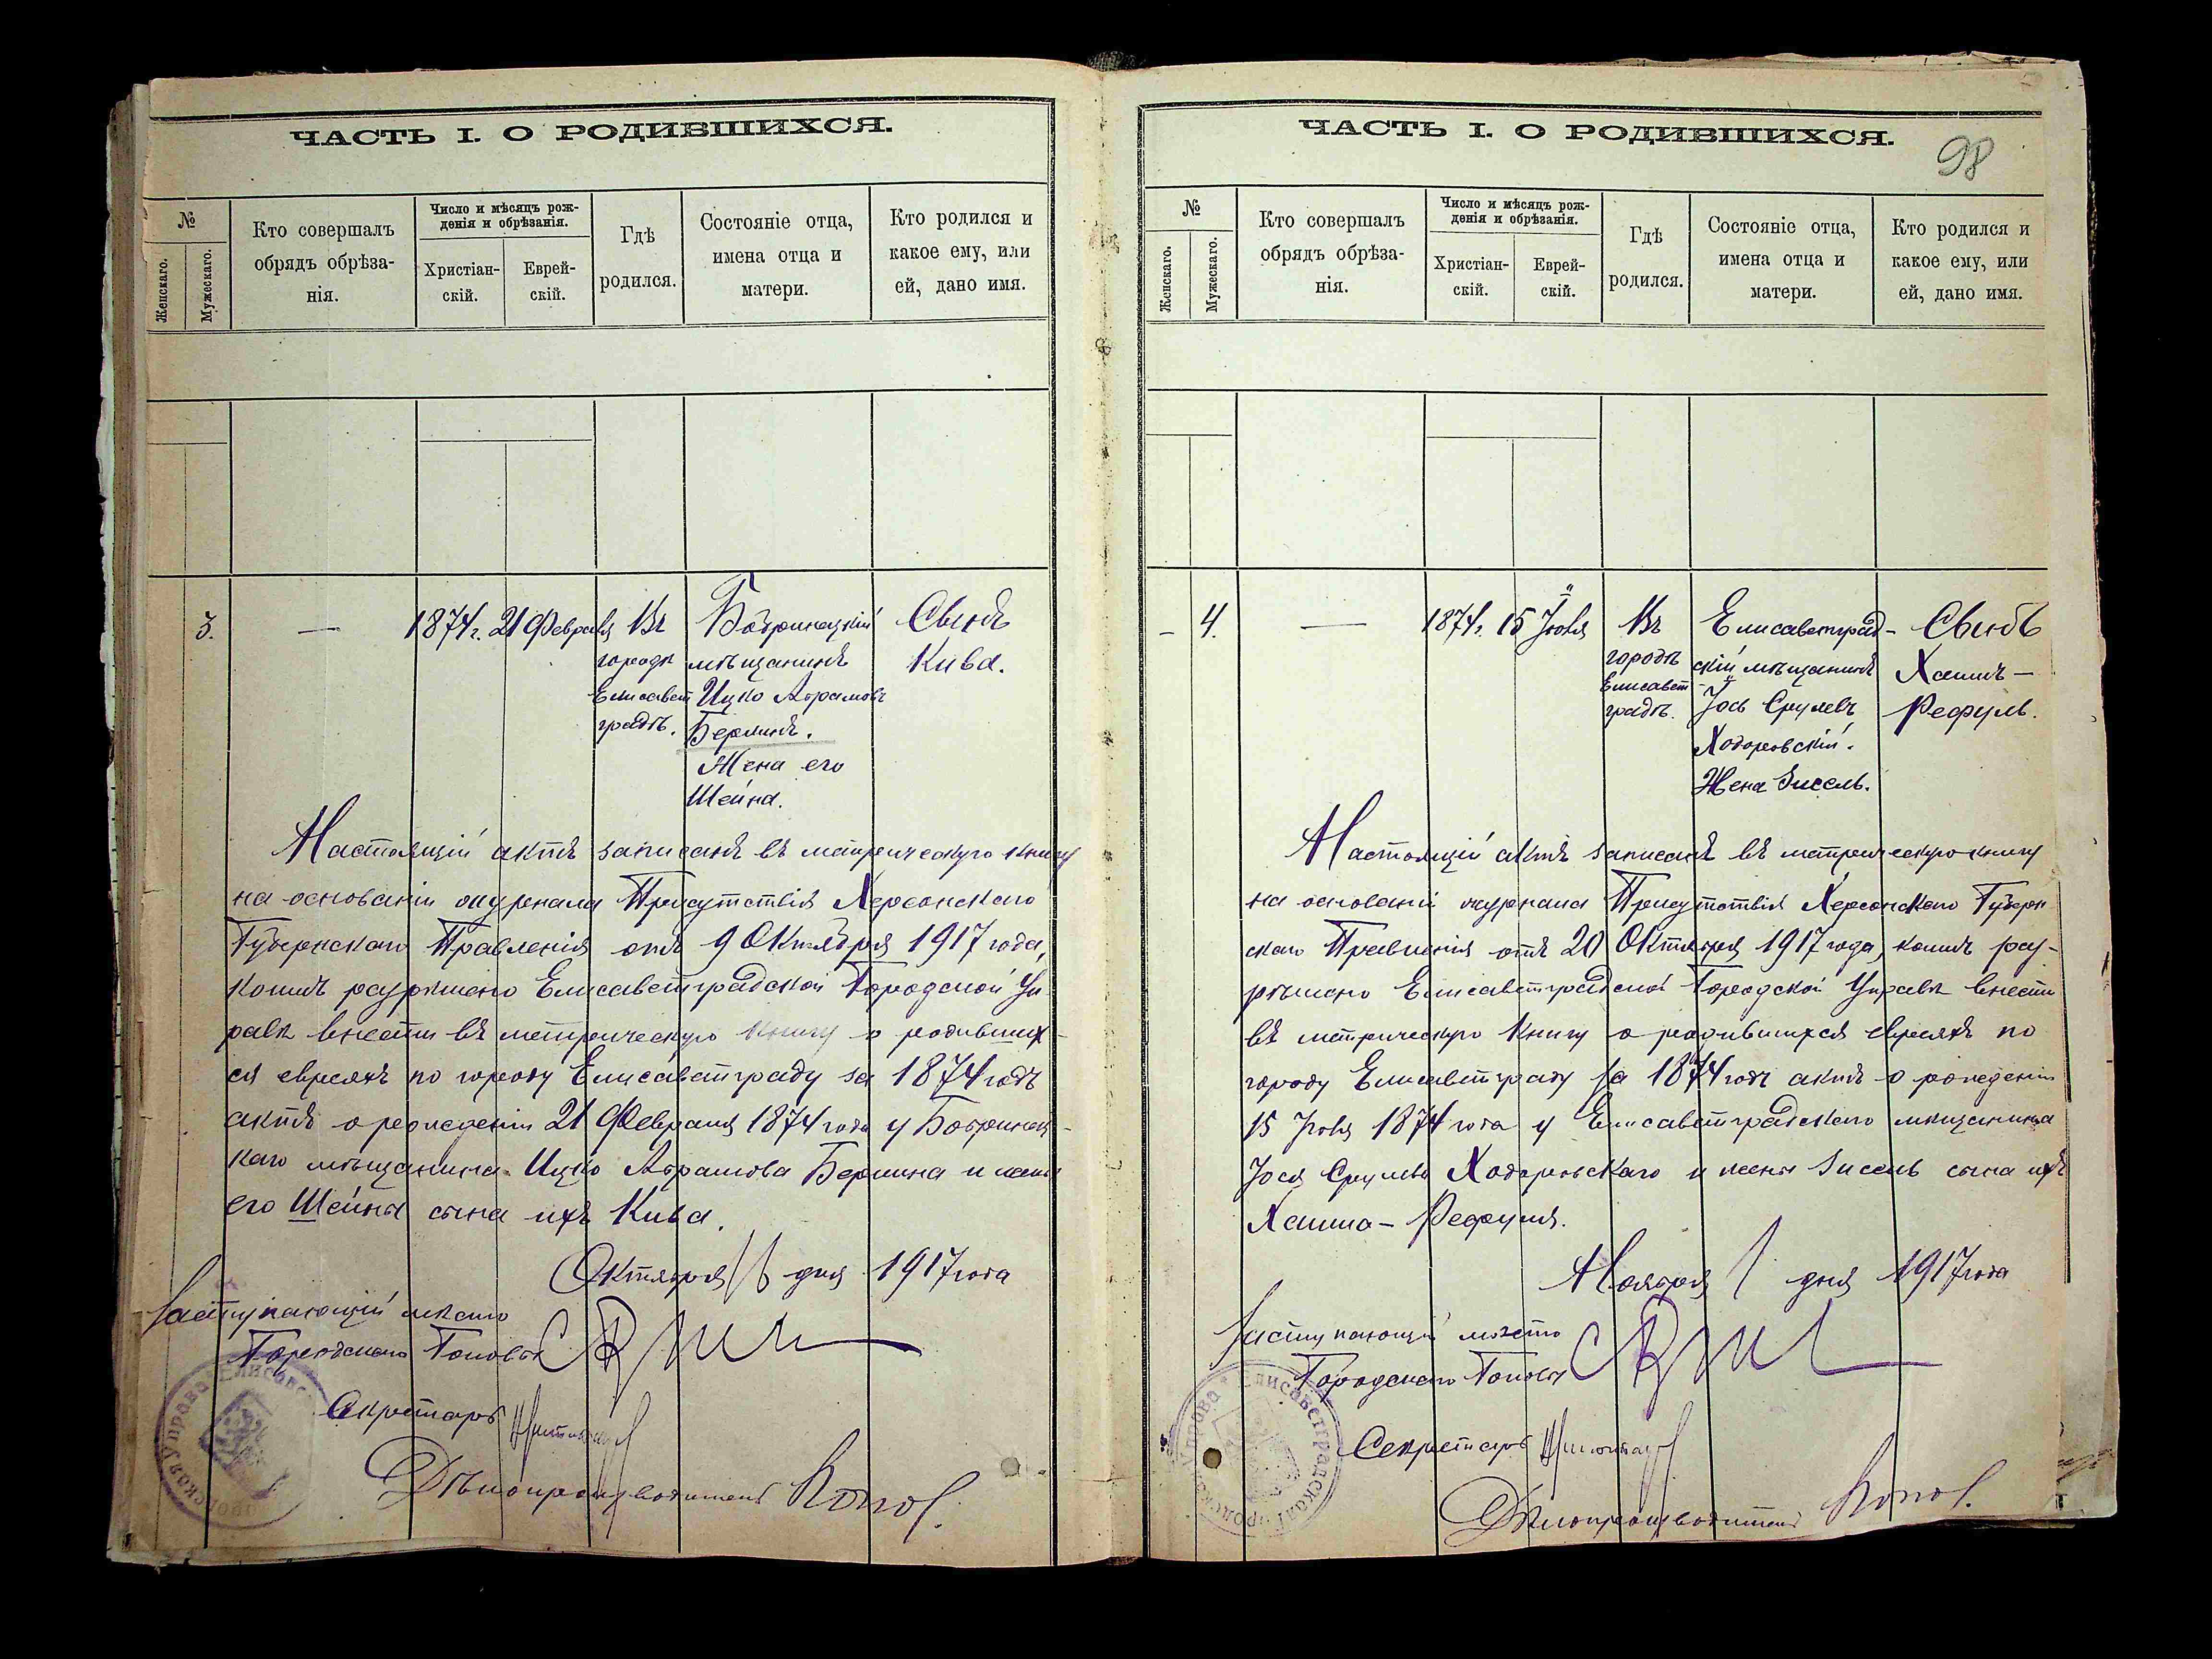 ЧАСТЬ I. О РОДИВШИХСЯ.
№
Женскаго.
Мужескаго.
Кто совершалъ
обрядъ обрѣза-
нія.
Число и мѣсяцъ рож-
денія и обрѣзанія.
Христіан-
скій.
Еврей-
скій.
Гдѣ
родился.
Состояніе отца,
имена отца и
матери.
Кто родился и
какое ему, или
ей, дано имя.
3.
—
1874 г. 21 Февраля
Въ
городѣ
Елисавет
градѣ.
Бобринецкій
мѣщанинъ
Ицко Абрамовъ
Берлинъ.
Жена его
Шейна.
Сынъ
Кива.
Настоящій актъ записанъ въ метрическую книгу
на основаніи журнала Присутствія Херсонскаго
Губернскаго Правленія отъ 9 Октября 1917 года,
коимъ разрѣшено Елисаветградской Городской Уп-
равѣ внести въ метрическую книгу о родивших-
ся евреяхъ по городу Елисаветграду за 1874 годъ
актъ о рожденіи 21 Февраля 1874 года у Бобринец-
каго мѣщанина Ицко Абрамова Берлина и жены
его Шейны сына ихъ Кива.
Октября 16 дня 1917 года
Заступающій мѣсто
Городского Головы
Секретарь
Дѣлопроизводитель
ЧАСТЬ I. О РОДИВШИХСЯ.
98
№
Женскаго.
Мужескаго.
Кто совершалъ
обрядъ обрѣза-
нія.
Число и мѣсяцъ рож-
денія и обрѣзанія.
Христіан-
скій.
Еврей-
скій.
Гдѣ
родился.
Состояніе отца,
имена отца и
матери.
Кто родился и
какое ему, или
ей, дано имя.
– 4.
—
1874 г. 15 Іюля
Въ
городѣ
Елисавет-
градѣ.
Елисаветград-
скій мѣщанинъ
Іось Срулевъ
Ходоровскій.
Жена Зисель.
Сынъ
Хаимъ –
Рефуль.
Настоящій актъ записанъ въ метрическую книгу
на основаніи журнала Присутствія Херсонскаго Губерн
скаго Правленія отъ 20 Октября 1917 года, коимъ раз-
рѣшено Елисаветградской Городской Управѣ внести
въ метрическую книгу о родившихся евреяхъ по
городу Елисаветграду за 1874 годъ актъ о рожденіи
15 Іюля 1874 года у Елисаветградскаго мѣщанина
Іося Срулева Ходоровскаго и жены Зисель сына ихъ
Хаима – Рефуля.
Ноября 1 дня 1917 года
Заступающій мѣсто
Городского Головы
Секретарь
Дѣлопроизводитель